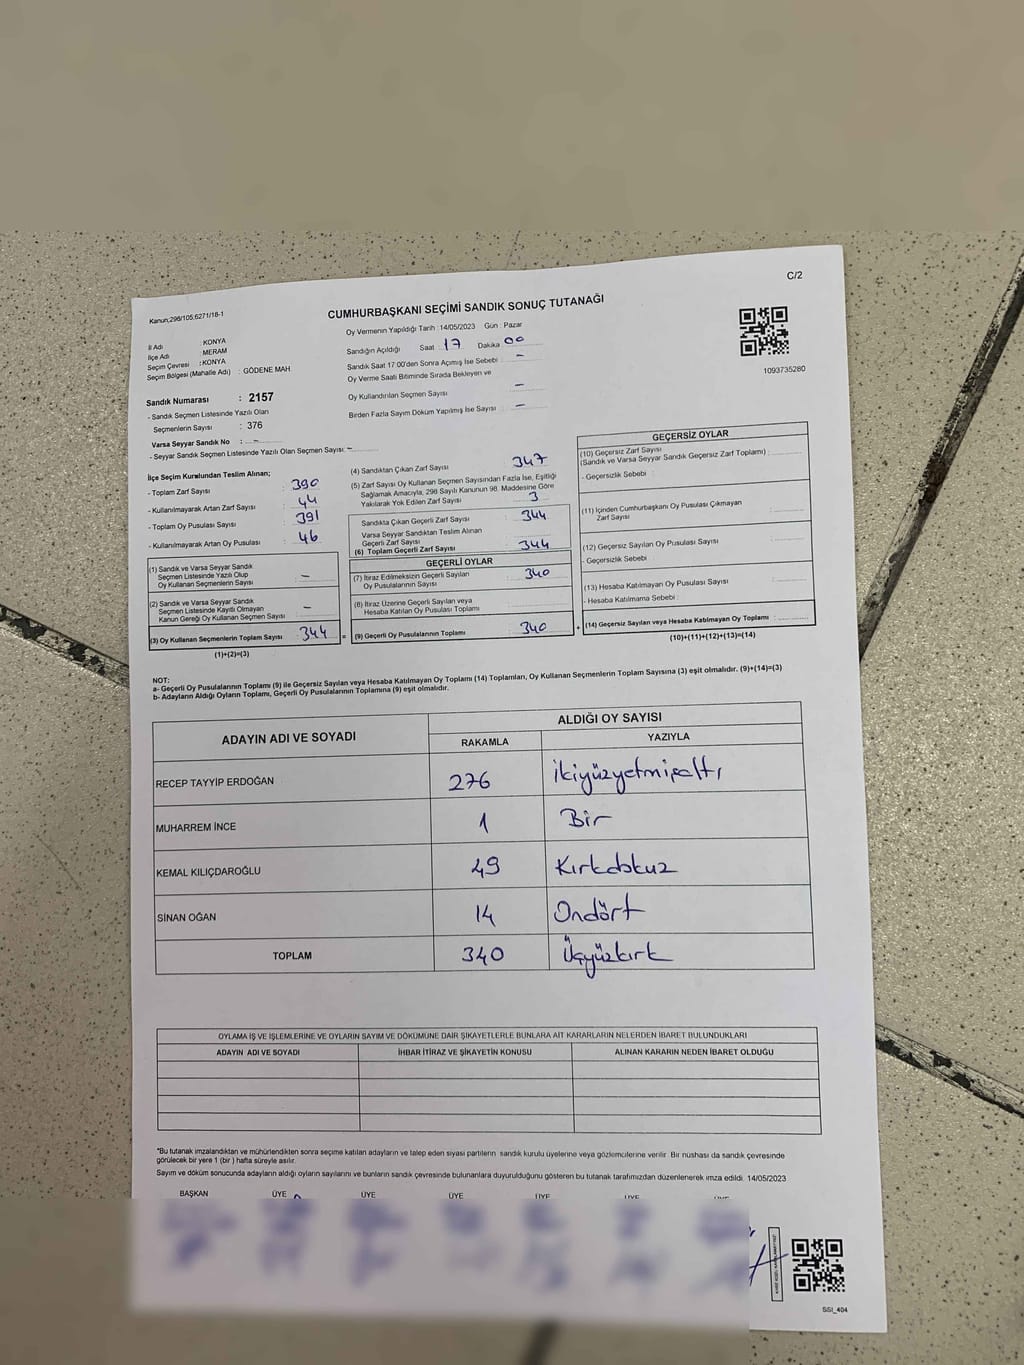 C/2
Kanun;298/105;6271/18-1
CUMHURBAŞKANI SEÇİMİ SANDIK SONUÇ TUTANAĞI
Oy Vermenin Yapıldığı Tarih :14/05/2023 Gün : Pazar
İl Adı : KONYA
İlçe Adı : MERAM
Seçim Çevresi : KONYA
Seçim Bölgesi (Mahalle Adı) : GÖDENE MAH.
Sandığın Açıldığı Saat : 17 Dakika : 00
Sandık Saat 17:00'den Sonra Açımış İse Sebebi : -
Oy Verme Saati Bitiminde Sırada Bekleyen ve
Oy Kullandırılan Seçmen Sayısı -
Birden Fazla Sayım Döküm Yapılmış İse Sayısı -
1093735280
Sandık Numarası : 2157
- Sandık Seçmen Listesinde Yazılı Olan
Seçmenlerin Sayısı : 376
Varsa Seyyar Sandık No : -
- Seyyar Sandık Seçmen Listesinde Yazılı Olan Seçmen Sayısı: -
İlçe Seçim Kurulundan Teslim Alınan;
- Toplam Zarf Sayısı : 390
- Kullanılmayarak Artan Zarf Sayısı : 44
- Toplam Oy Pusulası Sayısı : 391
- Kullanılmayarak Artan Oy Pusulası : 46
(1) Sandık ve Varsa Seyyar Sandık
Seçmen Listesinde Yazılı Olup
Oy Kullanan Seçmenlerin Sayısı -
(2) Sandık ve Varsa Seyyar Sandık
Seçmen Listesinde Kayıtlı Olmayan
Kanun Gereği Oy Kullanan Seçmen Sayısı -
(3) Oy Kullanan Seçmenlerin Toplam Sayısı : 344 =
(1)+(2)=(3)
(4) Sandıktan Çıkan Zarf Sayısı 347
(5) Zarf Sayısı Oy Kullanan Seçmen Sayısından Fazla İse, Eşitliği
Sağlamak Amacıyla, 298 Sayılı Kanunun 98. Maddesine Göre
Yakılarak Yok Edilen Zarf Sayısı 3
Sandıkta Çıkan Geçerli Zarf Sayısı : 344
Varsa Seyyar Sandıktan Teslim Alınan
Geçerli Zarf Sayısı
(6) Toplam Geçerli Zarf Sayısı : 344
GEÇERLİ OYLAR
(7) İtiraz Edilmeksizin Geçerli Sayılan
Oy Pusulalarının Sayısı : 340
(8) İtiraz Üzerine Geçerli Sayılan veya
Hesaba Katılan Oy Pusulası Toplamı
(9) Geçerli Oy Pusulalarının Toplamı : 340 +
GEÇERSİZ OYLAR
(10) Geçersiz Zarf Sayısı
(Sandık ve Varsa Seyyar Sandık Geçersiz Zarf Toplamı) :
- Geçersizlik Sebebi :
(11) İçinden Cumhurbaşkanı Oy Pusulası Çıkmayan
Zarf Sayısı
(12) Geçersiz Sayılan Oy Pusulası Sayısı
- Geçersizlik Sebebi :
(13) Hesaba Katılmayan Oy Pusulası Sayısı
- Hesaba Katılmama Sebebi :
(14) Geçersiz Sayılan veya Hesaba Katılmayan Oy Toplamı :
(10)+(11)+(12)+(13)=(14)
NOT:
a- Geçerli Oy Pusulalarının Toplamı (9) ile Geçersiz Sayılan veya Hesaba Katılmayan Oy Toplamı (14) Toplamları, Oy Kullanan Seçmenlerin Toplam Sayısına (3) eşit olmalıdır. (9)+(14)=(3)
b- Adayların Aldığı Oyların Toplamı, Geçerli Oy Pusulalarının Toplamına (9) eşit olmalıdır.
ADAYIN ADI VE SOYADI
ALDIĞI OY SAYISI
RAKAMLA YAZIYLA
RECEP TAYYİP ERDOĞAN 276 ikiyüzyetmişaltı
MUHARREM İNCE 1 Bir
KEMAL KILIÇDAROĞLU 49 Kırkdokuz
SİNAN OĞAN 14 Ondört
TOPLAM 340 Üçyüzkırk
OYLAMA İŞ VE İŞLEMLERİNE VE OYLARIN SAYIM VE DÖKÜMÜNE DAİR ŞİKAYETLERLE BUNLARA AİT KARARLARIN NELERDEN İBARET BULUNDUKLARI
ADAYIN ADI VE SOYADI İHBAR İTİRAZ VE ŞİKAYETİN KONUSU ALINAN KARARIN NEDEN İBARET OLDUĞU
*Bu tutanak imzalandıktan ve mühürlendikten sonra seçime katılan adayların ve talep eden siyasi partilerin sandık kurulu üyelerine veya gözlemcilerine verilir. Bir nüshası da sandık çevresinde
görülecek bir yere 1 (bir ) hafta süreyle asılır.
Sayım ve döküm sonucunda adayların aldığı oyların sayılarını ve bunların sandık çevresinde bulunanlara duyurulduğunu gösteren bu tutanak tarafımızdan düzenlenerek imza edildi. 14/05/2023
BAŞKAN ÜYE ÜYE ÜYE ÜYE ÜYE ÜYE
SSİ_404